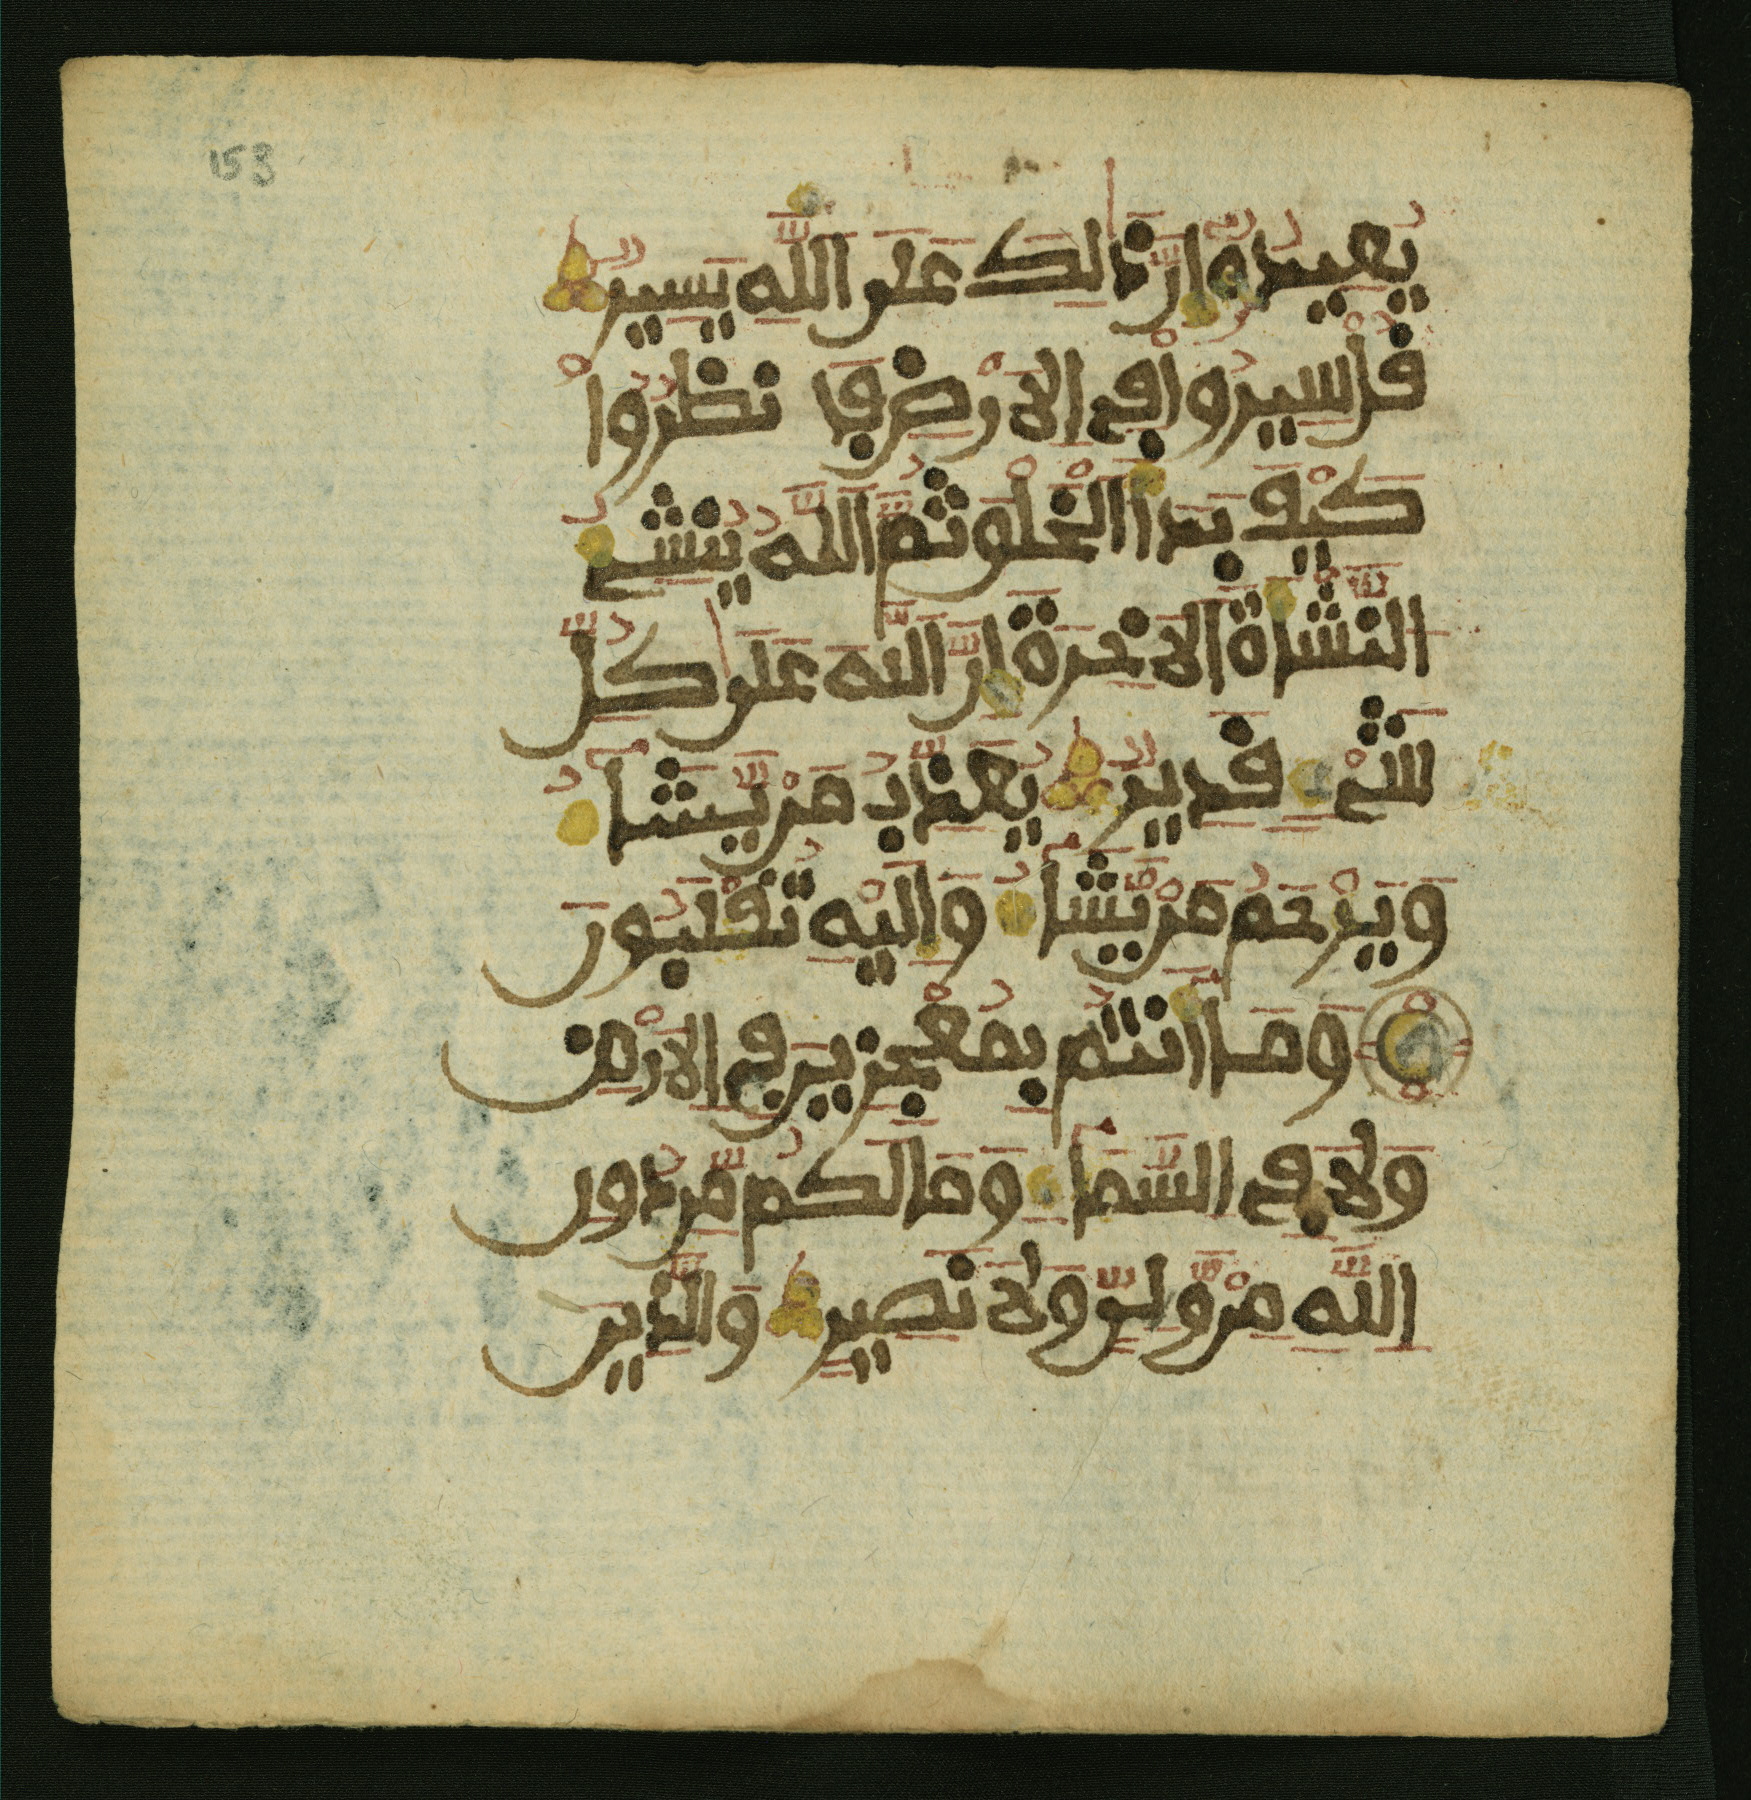 153
يُعِيدُهُۥٓ إِنَّ ذَٰلِكَ عَلَى ٱللَّهِ يَسِيرٌ
قُلْ سِيرُوا۟ فِي ٱلَارْضِ فَانظُرُوا۟
كَيْفَ بَدَأَ ٱلْخَلْقَ ثُمَّ ٱللَّهُ يُنشِئُ
ٱلنَّشْأَةَ ٱلَاخِرَةَ إِنَّ ٱللَّهَ عَلَىٰ كُلِّ
شَيْءٍ قَدِيرٌ يُعَذِّبُ مَنْ يَّشَآءُ
وَيَرْحَمُ مَنْ يَّشَآءُ وَإِلَيْهِ تُقْلَبُونَ
وَمَآ أَنتُم بِمُعْجِزِينَ فِي ٱلَارْضِ
وَلَا فِي ٱلسَّمَآءِ وَمَا لَكُم مِّن دُونِ
ٱللَّهِ مِنْ وَّلِيٍّ وَلَا نَصِيرٍ وَٱلَّذِينَ